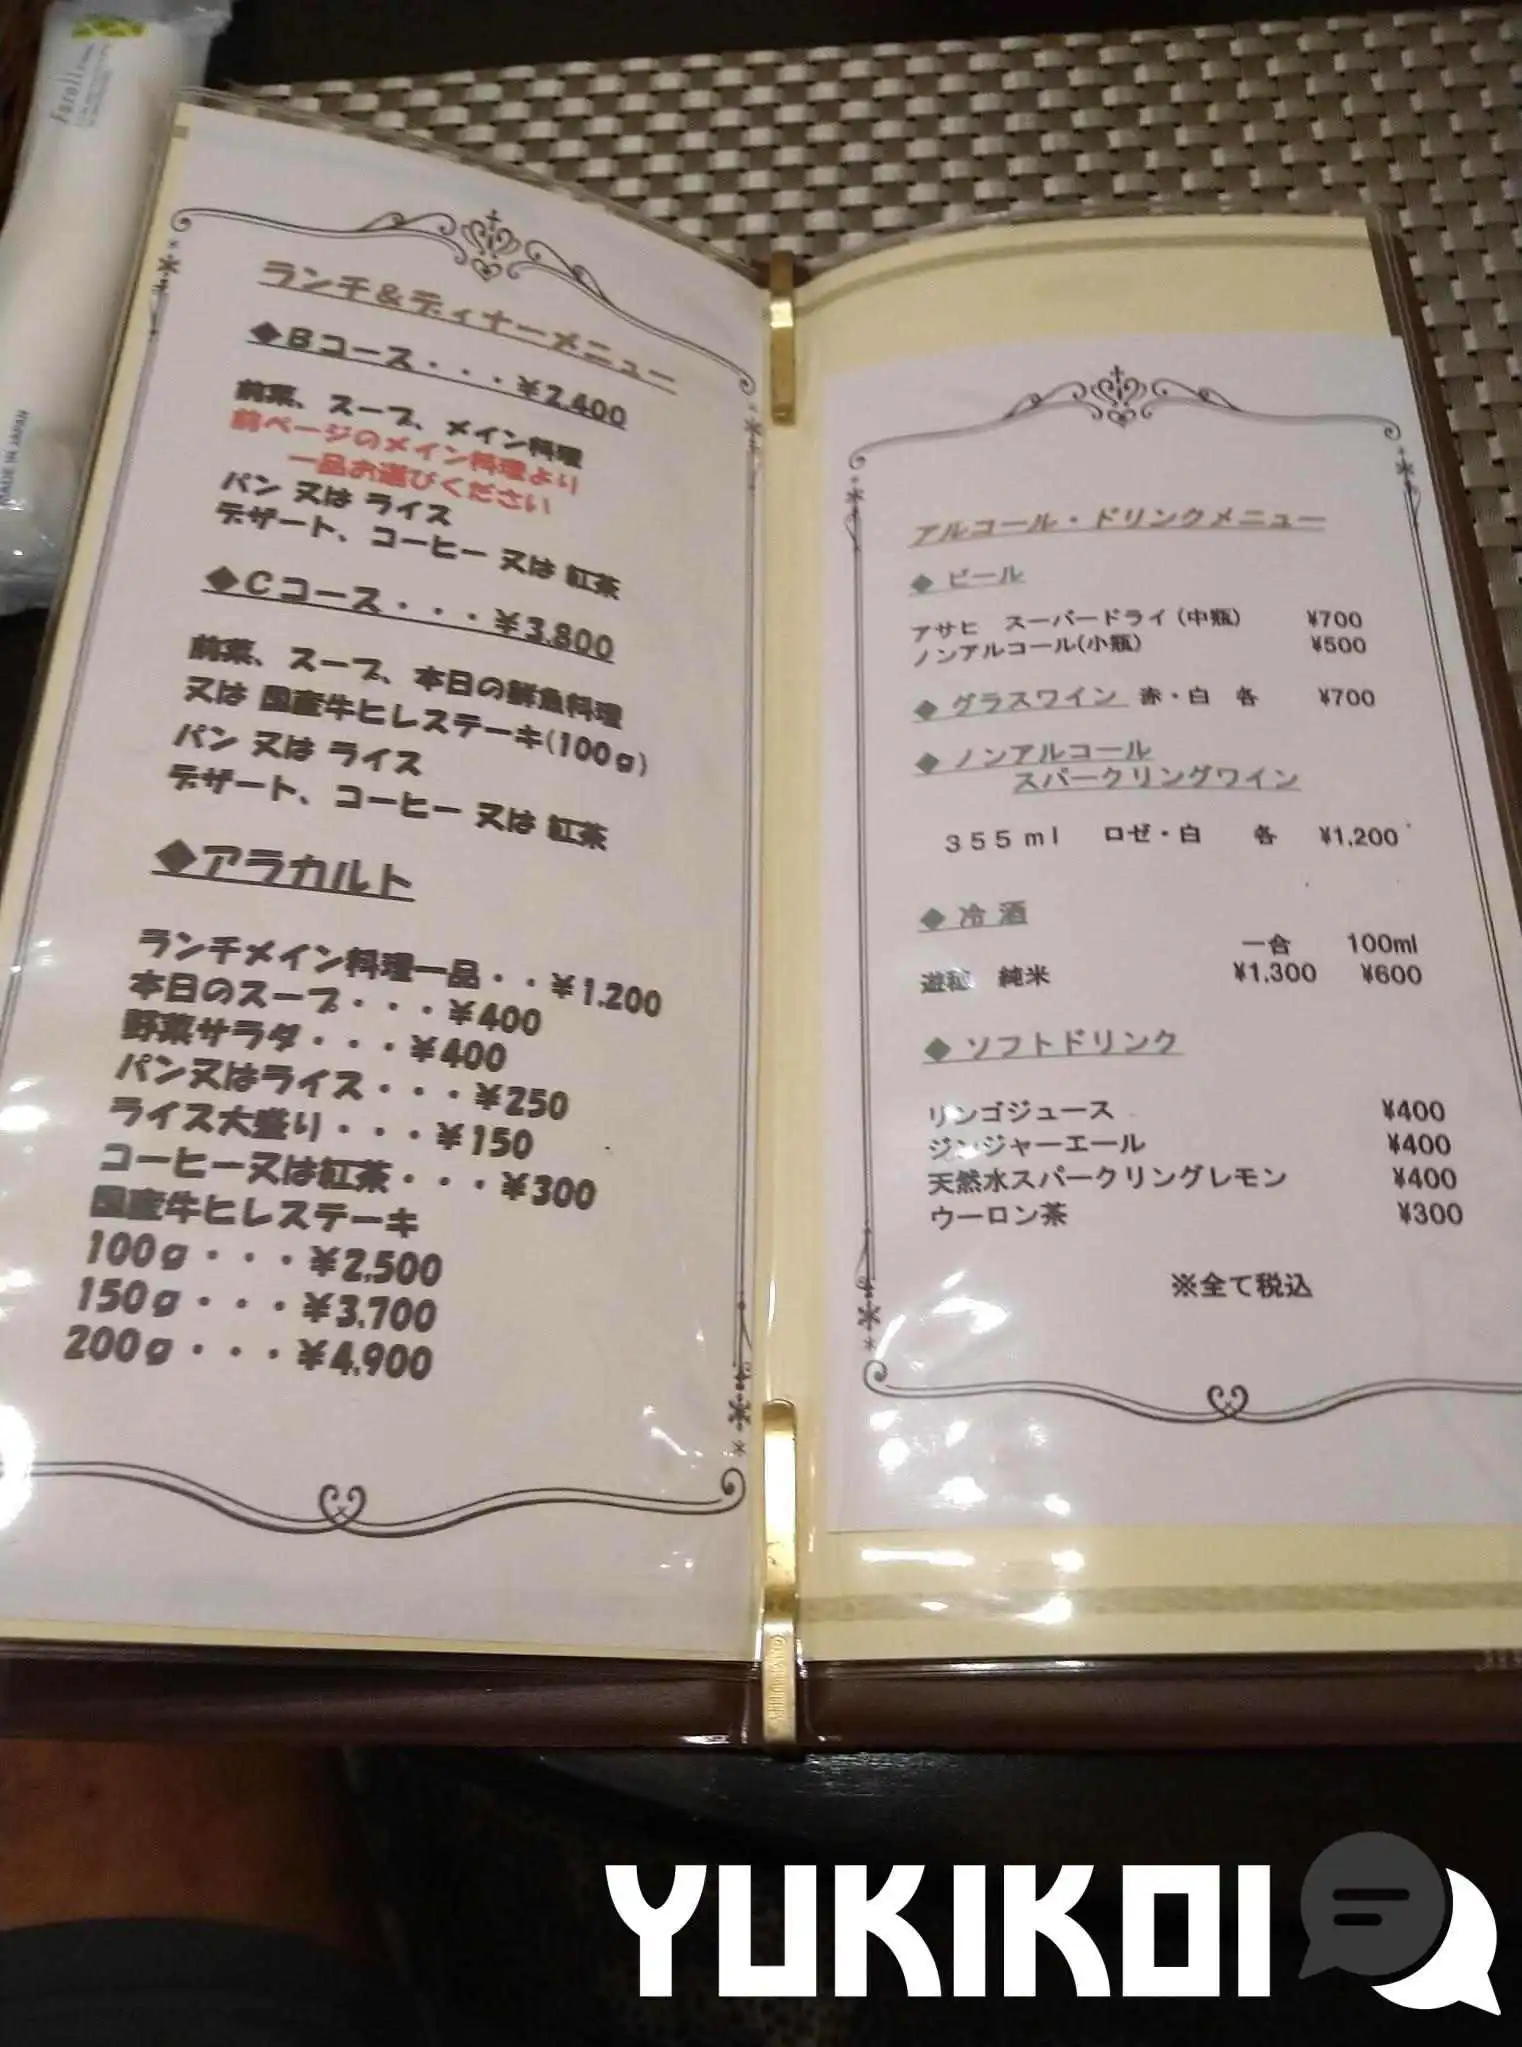 Faroli
MADE IN JAPAN
ランチ＆ディナーメニュー
◆Bコース・・・¥2,400
前菜、スープ、メイン料理
前ページのメイン料理より
一品お選びください
パン 又は ライス
デザート、コーヒー 又は 紅茶
◆Cコース・・・¥3,800
前菜、スープ、本日の鮮魚料理
又は 国産牛ヒレステーキ(100g)
パン 又は ライス
デザート、コーヒー 又は 紅茶
◆アラカルト
ランチメイン料理一品・・¥1,200
本日のスープ・・・¥400
野菜サラダ・・・¥400
パン又はライス・・・¥250
ライス大盛り・・・¥150
コーヒー又は紅茶・・・¥300
国産牛ヒレステーキ
100g・・・¥2,500
150g・・・¥3,700
200g・・・¥4,900
アルコール・ドリンクメニュー
◆ ビール
アサヒ スーパードライ(中瓶) ¥700
ノンアルコール(小瓶) ¥500
◆ グラスワイン 赤・白 各 ¥700
◆ ノンアルコール
スパークリングワイン
355ml ロゼ・白 各 ¥1,200
◆ 冷酒
一合 100ml
遊穂 純米 ¥1,300 ¥600
◆ ソフトドリンク
リンゴジュース ¥400
ジンジャーエール ¥400
天然水スパークリングレモン ¥400
ウーロン茶 ¥300
※全て税込
YUKIKOI